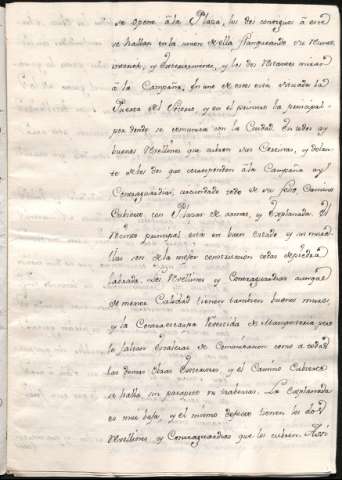 se opone à la Plaza, los dos contiguos à este
se hallan en la union de ella flanqueando su
y Exteriormente, y los dos restantes miran
à la Campaña, En uno de estos està situada la
Puerta del Socorro, y en el primero la principal
por donde se comunica con la Ciudad. En todos ay
buenos Rvellines que cubren sus Cortinas, y delan-
te de los dos que corresponden à la Campaña ay
Contraguardias, circundado todo de su foso Camino
Cubierto, con Plazas de armas, y Explanada. El
Recinto principal està en buen estado y sus mura-
llas son de la mejor construccion todas de piedra
labrada. Los Rvellines y Contraguardias aunque
de menor Calidad tienen tambien buenos muros,
y la Contraescarpa Revestida de Mamposteria pero
le faltan Galerias de Comunicacion como a todas
las demas obras Exteriores y el Camino Cubierto
se halla sin parapeto ni trabersas. La Explanada
es muy baja, y el mismo defecto tienen los dos
Rvellines, y Contraguardias que los cubren. Assi